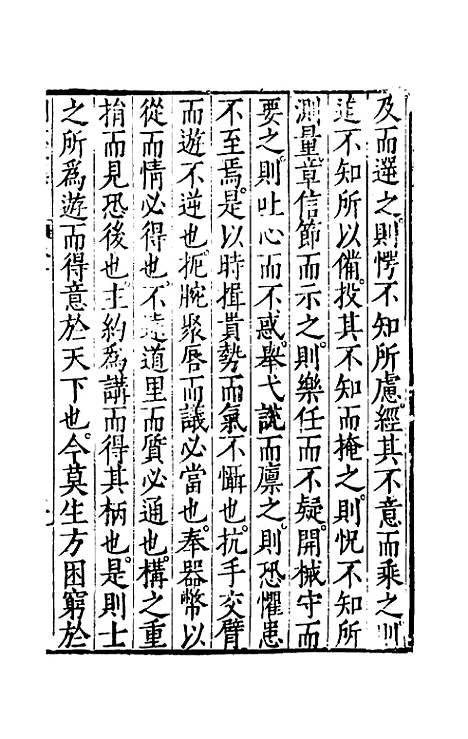 及而選之則愕不知所慮經其不意而乘之則
不知所以備投其不知而掩之則怳不知所
測量章信節而示之則樂任而不疑開械守而
要之則吐心而不惑舉弋説而廪之則恐懼患
不至焉是以時揖貴勢而氣不懾也抗手交臂
而遊不逆也扼腕聚唇而議必當也奉器幣以
從而情必得也不遠道里而質必通也構之重
掯而見恐後也主約為講而得其柄也是則士
之所為遊而得意於天下也今莫生方困窮於